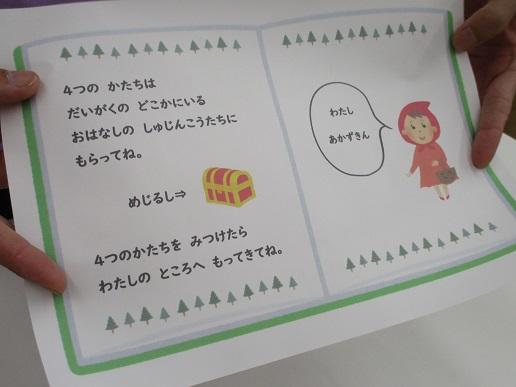 4つの かたちは
だいがくの どこかにいる
おはなしの しゅじんこうたちに
もらってね。
めじるし⇒
4つのかたちを みつけたら
わたしの ところへ もってきてね。
わたし
あかずきん